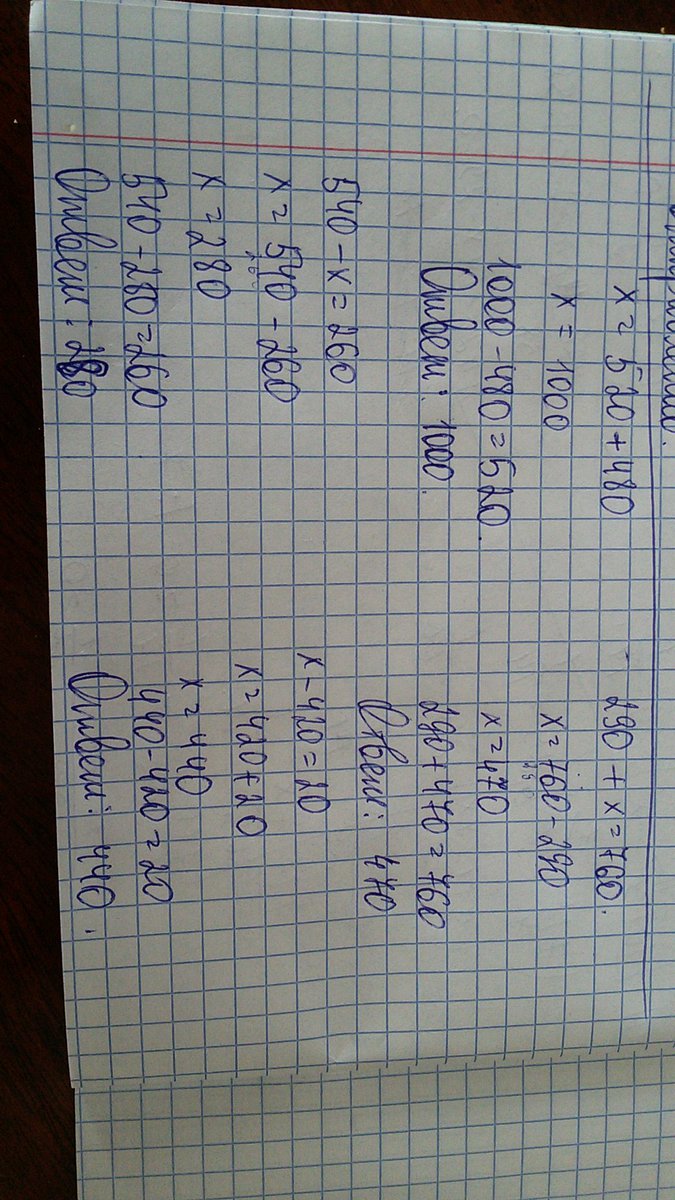 x = 520 + 480
x = 1000
1000 - 480 = 520.
Ответ: 1000.
540 - x = 260
x = 540 - 260
x = 280
540 - 280 = 260
Ответ: 280
290 + x = 760.
x = 760 - 290
x = 470
290 + 470 = 760
Ответ: 470
x - 420 = 20
x = 420 + 20
x = 440
440 - 420 = 20
Ответ: 440.